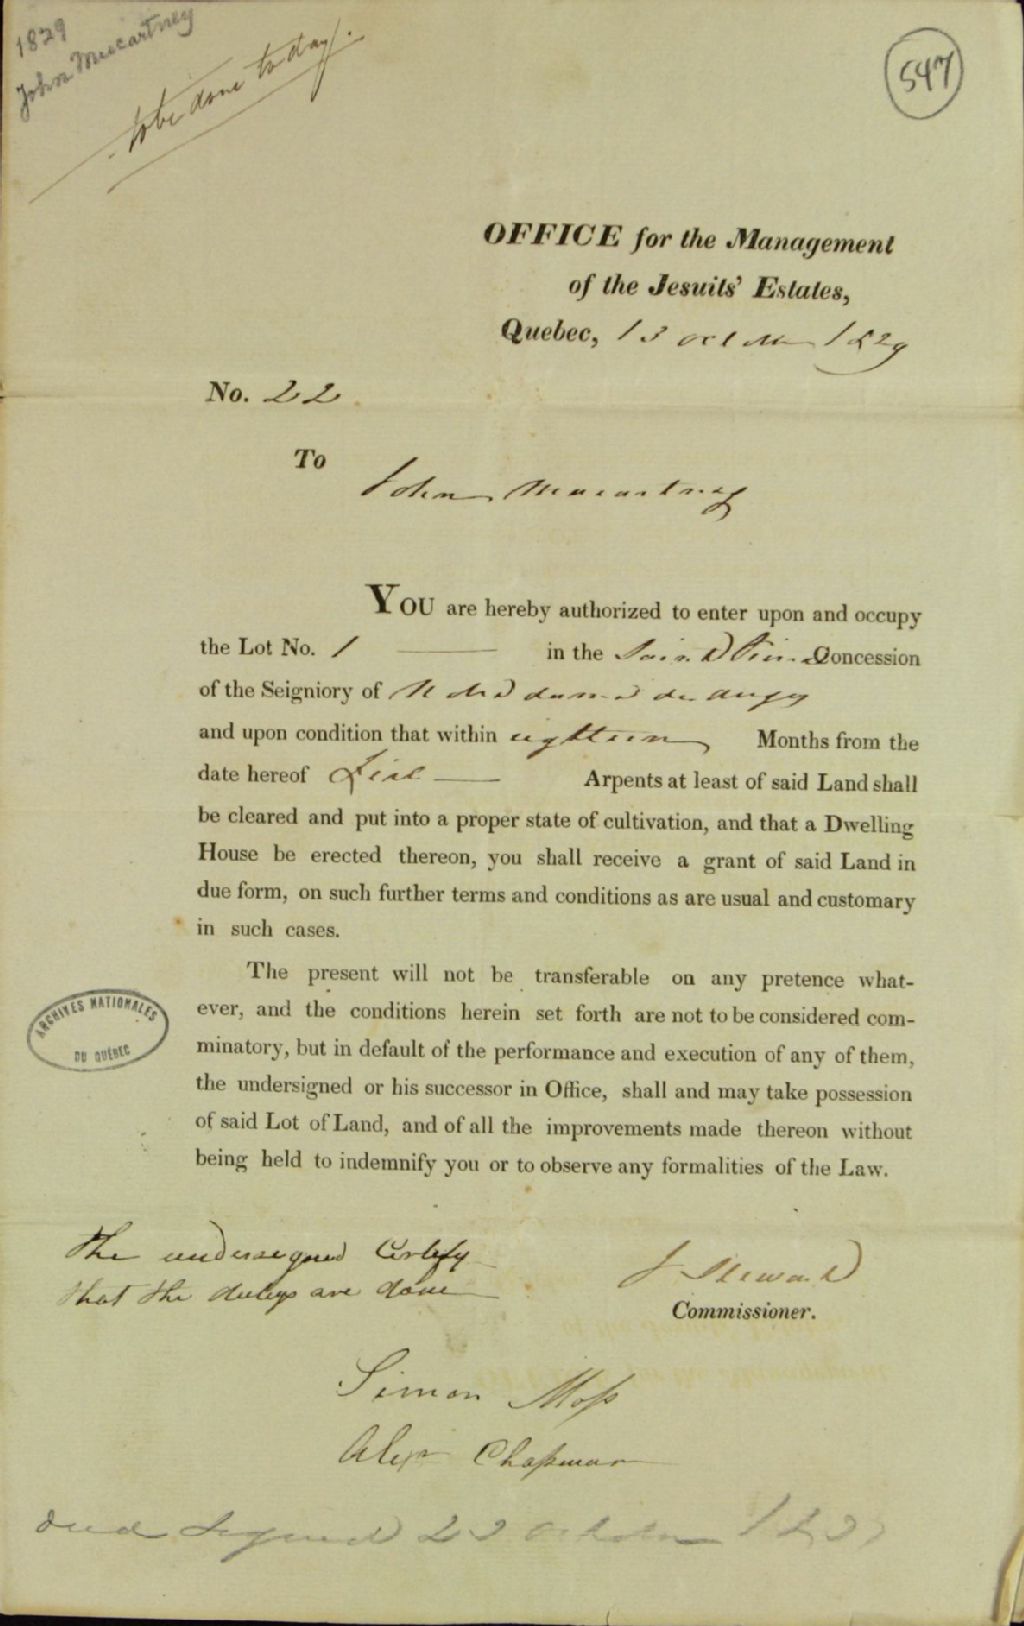 1829
John Muccartney
to be done today
547
OFFICE for the Management
of the Jesuits' Estates,
Quebec, 13 October 1829
No. 22
To
John Mucartney
YOU are hereby authorized to enter upon and occupy
the Lot No. 1 in the Concession
of the Seigniory of
and upon condition that within eighteen Months from the
date hereof Arpents at least of said Land shall
be cleared and put into a proper state of cultivation, and that a Dwelling
House be erected thereon, you shall receive a grant of said Land in
due form, on such further terms and conditions as are usual and customary
in such cases.
The present will not be transferable on any pretence what-
ever, and the conditions herein set forth are not to be considered com-
minatory, but in default of the performance and execution of any of them,
the undersigned or his successor in Office, shall and may take possession
of said Lot of Land, and of all the improvements made thereon without
being held to indemnify you or to observe any formalities of the Law.
ARCHIVES NATIONALES
DU QUÉBEC
The undersigned Certify
that the dutys are done
J Stewart
Commissioner.
Simon Moss
Alexr Chapman
deed signed 22 October